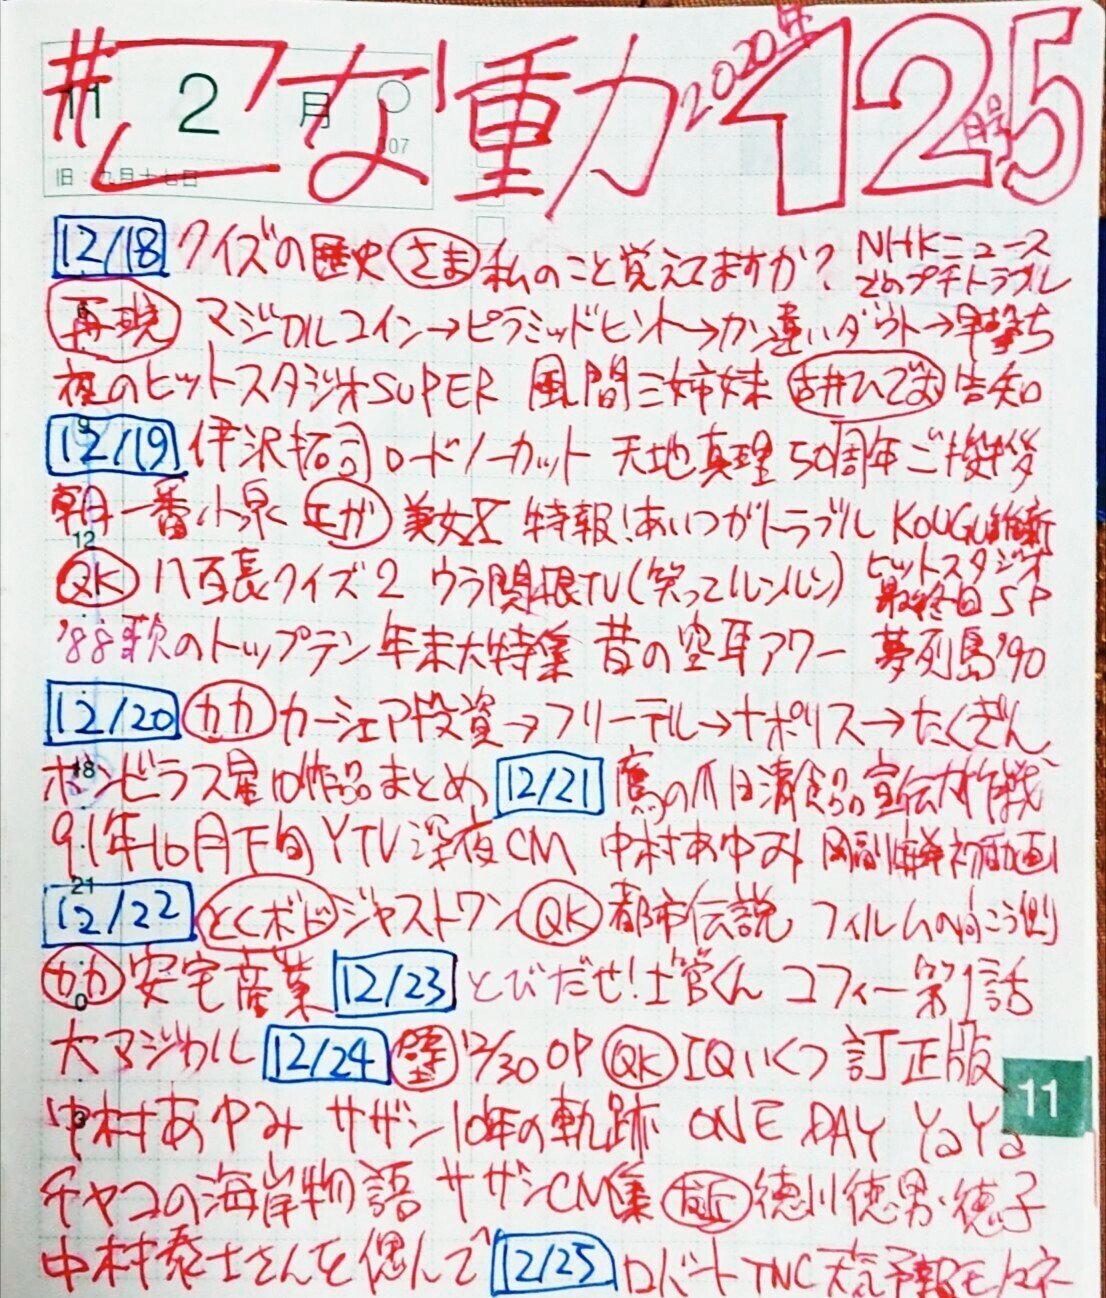 #こな動力 2020年12月号 125
11 2 月
307
旧:九月十七日
12/18 クイズの歴史 さま 私のこと覚えてますか? NHKニュースでのプチトラブル
再現 マジカルコイン→ピラミッドヒント→かん違いダウト→早撃ち
夜のヒットスタジオSUPER 風間三姉妹 古井ひでお 告知
12/19 伊沢拓司 ロードノーカット 天地真理 50周年ご挨拶
朝一番小泉 エガ 美女X 特報!あいつがトラブル KOUGU維新
12
QK 八百長クイズ2 ウラ関根TV(笑ってルンルン) ヒットスタジオ最終日SP
'88歌のトップテン年末大特集 昔の空耳アワー 夢列島'90
12/20 カカ カーシェア投資→フリーテル→ナポリス→たくぎん
18
ボンビラス星10作品まとめ 12/21 鷹の爪日清食品宣伝大作戦
91年10月下旬YTV深夜CM 中村あゆみ 初動画
21
12/22 とくボド ジャストワン QK 都市伝説 フィルムの向こう側
カカ 安宅産業 12/23 とびだせ!土管くん コフィー第1話
0
大マジカル 12/24 12/30OP QK IQいくつ 訂正版
11
3
中村あゆみ サザン10年の軌跡 ONE DAY YaYa
チャコの海岸物語 サザンCM集 徳川徳男・徳子
中村泰士さんを偲んで 12/25 ロバートTNC天気予報モノマネ